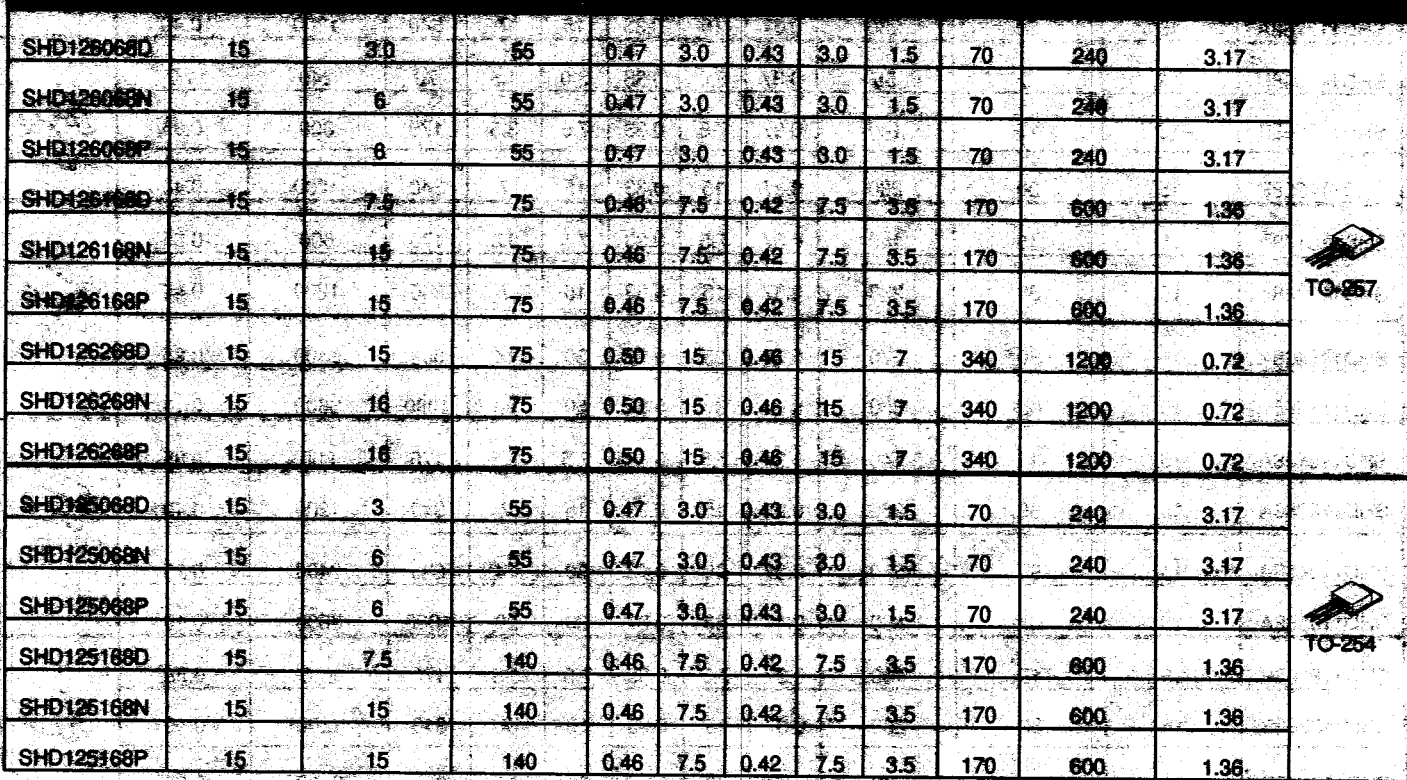 SHD126068D 15 3.0 55 0.47 3.0 0.43 3.0 1.5 70 240 3.17
SHD126068N 15 6 55 0.47 3.0 0.43 3.0 1.5 70 240 3.17
SHD126068P 15 6 55 0.47 3.0 0.43 3.0 1.5 70 240 3.17
SHD126168D 15 7.5 75 0.46 7.5 0.42 7.5 3.5 170 600 1.36
SHD126168N 15 15 75 0.46 7.5 0.42 7.5 3.5 170 600 1.36
TO-257
SHD126168P 15 15 75 0.46 7.5 0.42 7.5 3.5 170 600 1.36
SHD126268D 15 15 75 0.50 15 0.46 15 7 340 1200 0.72
SHD126268N 15 16 75 0.50 15 0.46 15 7 340 1200 0.72
SHD126268P 15 16 75 0.50 15 0.46 15 7 340 1200 0.72
SHD125068D 15 3 55 0.47 3.0 0.43 3.0 1.5 70 240 3.17
SHD125068N 15 6 55 0.47 3.0 0.43 3.0 1.5 70 240 3.17
SHD125068P 15 6 55 0.47 3.0 0.43 3.0 1.5 70 240 3.17
TO-254
SHD125168D 15 7.5 140 0.46 7.5 0.42 7.5 3.5 170 600 1.36
SHD125168N 15 15 140 0.46 7.5 0.42 7.5 3.5 170 600 1.36
SHD125168P 15 15 140 0.46 7.5 0.42 7.5 3.5 170 600 1.36